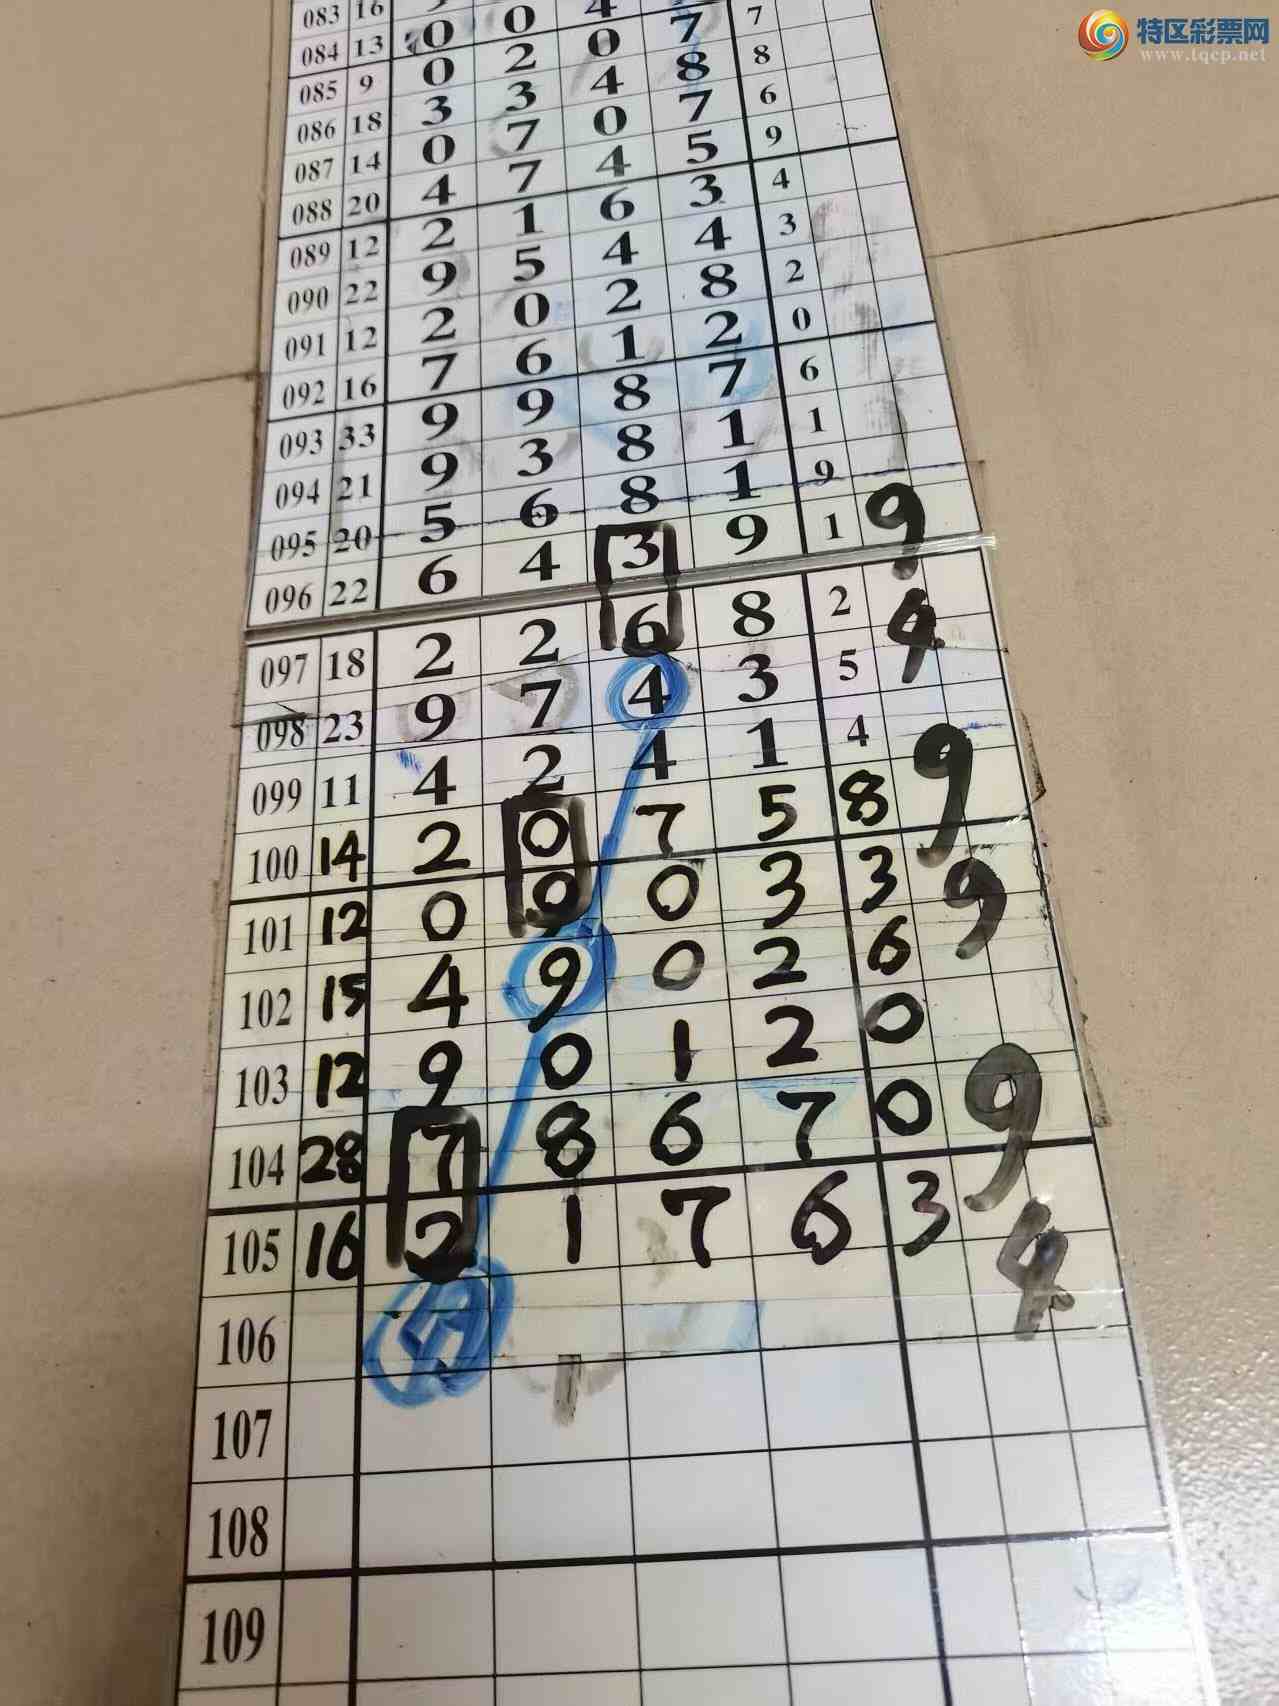 特区彩票网
www.tqcp.net
083 16
084 13 0 0 4
085 9 0 2 0 7 7
086 18 3 3 4 8 8
087 14 0 7 0 7 6
088 20 4 7 4 5 9
089 12 2 1 6 3 4
090 22 9 5 4 4 3
091 12 2 0 2 8 2
092 16 7 6 1 2 0
093 33 9 9 8 7 6
094 21 9 3 8 1 1
095 20 5 6 8 1 9
096 22 6 4 3 9 1 9
097 18 2 2 6 8 2 4
098 23 9 7 4 3 5
099 11 4 2 4 1 4
100 14 2 0 7 5 8 9
101 12 0 9 0 3 3 9
102 15 4 9 0 2 6
103 12 9 0 1 2 0
104 28 7 8 6 7 0 9
105 16 2 1 7 6 3 4
106
107
108
109